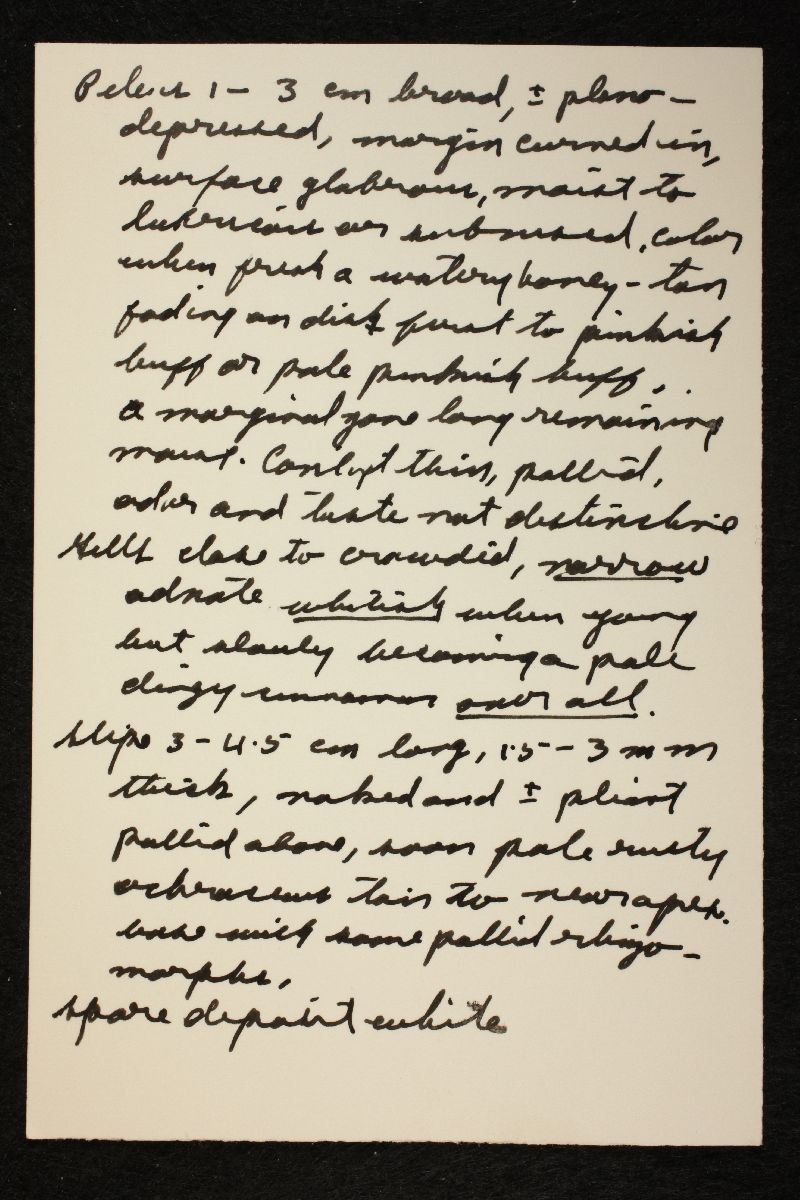 Pileus 1 - 3 cm broad, ± plano-
depressed, margin curved in,
surface glabrous, moist to
lubricous or subviscid, color
when fresh a watery honey-tan
fading on disk first to pinkish
buff or pale pinkish buff,
a marginal zone long remaining
moist. Context thin, pallid,
odor and taste not distinctive
Gills close to crowded, narrow
adnate whitish when young
but slowly becoming a pale
dingy cinnamon over all.
Stipe 3 - 4.5 cm long, 1.5 - 3 mm
thick, naked and ± pliant
pallid above, soon pale rusty
ochraceous tan to near apex.
base with some pallid rhizo-
morphs,
spore deposit white